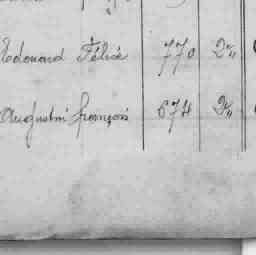 Edouard Félice 770 2%
Augustin françois 674 2%